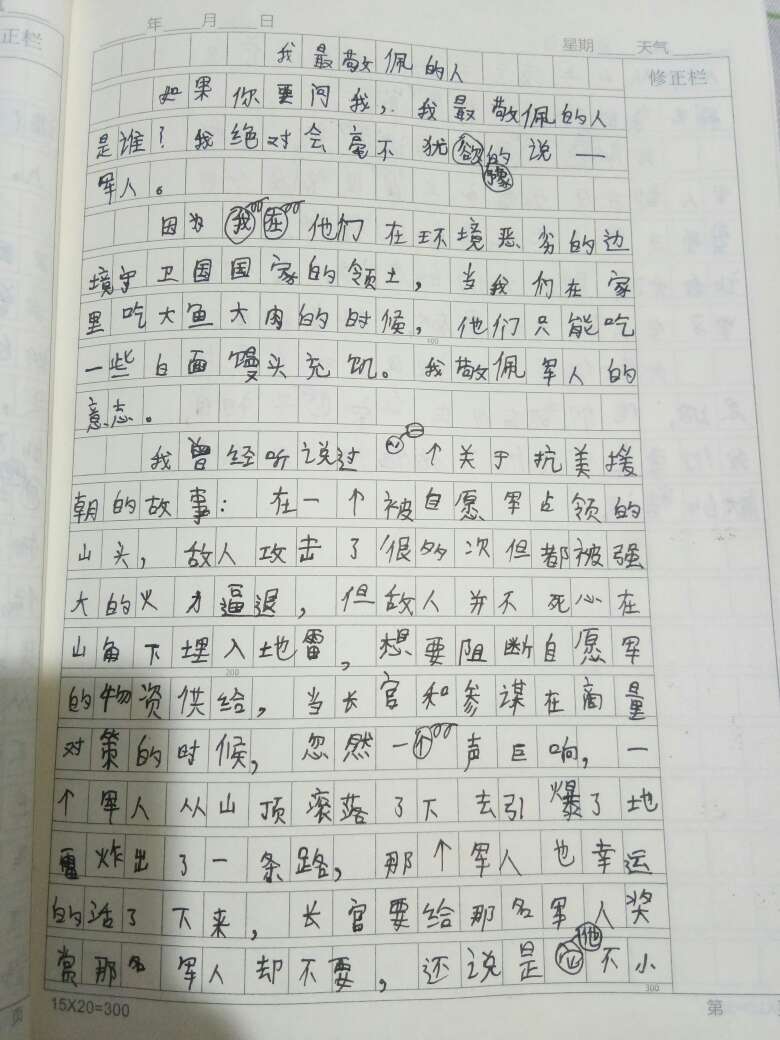 年 月 日
星期 天气
正栏
修正栏
我最敬佩的人
如果你要问我,我最敬佩的人
是谁?我绝对会毫不犹豫的说一
军人。
因为他们在环境恶劣的边
境守卫国国家的领土,当我们在家
里吃大鱼大肉的的时候,他们只能吃
一些白面馒头充饥。我敬佩军人的
意志。
我曾经听说过一个关于抗美援
朝的故事:在一个被自愿军占领的
山头,敌人攻击了很多次但都被强
大的火力逼退,但敌人并不死心在
山角下埋入地雷,想要阻断自愿军
的物资供给,当长官和参谋在商量
对策的时候,忽然一声巨响,一
个军人从山顶滚落了下去引爆了地
雷炸出了一条路,那个军人也幸运
的活了下来,长官要给那名军人奖
赏那名军人却不要,还说是他不小
100
200
300
15X20=300
第
页